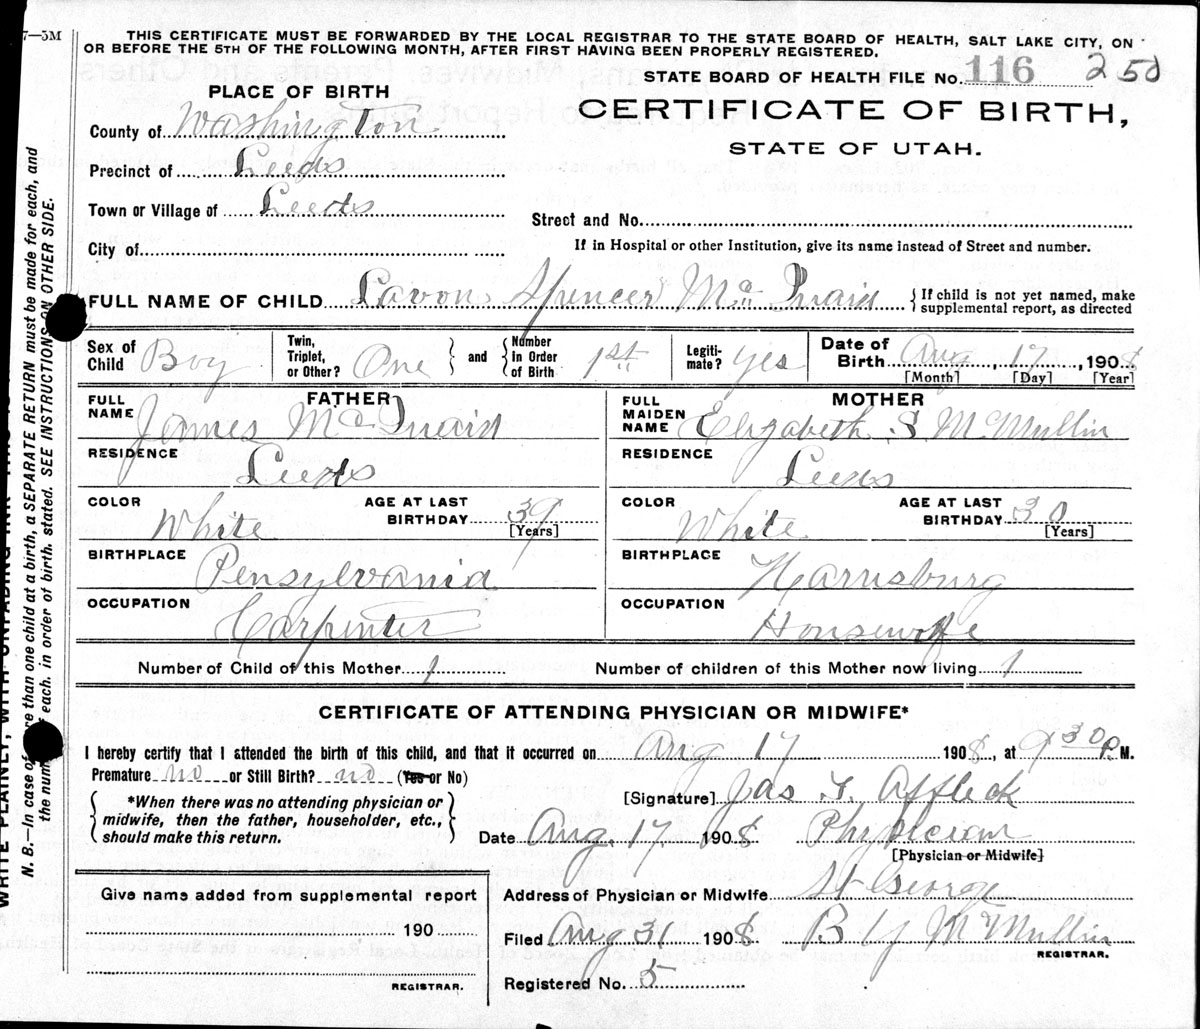 7—5M
THIS CERTIFICATE MUST BE FORWARDED BY THE LOCAL REGISTRAR TO THE STATE BOARD OF HEALTH, SALT LAKE CITY, ON
OR BEFORE THE 5TH OF THE FOLLOWING MONTH, AFTER FIRST HAVING BEEN PROPERLY REGISTERED.
STATE BOARD OF HEALTH FILE No. 116 250
PLACE OF BIRTH
CERTIFICATE OF BIRTH,
STATE OF UTAH.
County of Washington
Precinct of Leeds
Town or Village of Leeds
Street and No.
City of
If in Hospital or other Institution, give its name instead of Street and number.
FULL NAME OF CHILD Lavon Spencer Mc Quaid { If child is not yet named, make supplemental report, as directed
Sex of Child Boy Twin, Triplet, or Other? One } and { Number in Order of Birth 1st Legitimate? Yes Date of Birth Aug 17, 1908
[Month] [Day] [Year]
FATHER
FULL NAME James McQuaid
RESIDENCE Leeds
COLOR White AGE AT LAST BIRTHDAY 39
[Years]
BIRTHPLACE Pensylvania
OCCUPATION Carpenter
MOTHER
FULL MAIDEN NAME Elizabeth S McMullin
RESIDENCE Leeds
COLOR White AGE AT LAST BIRTHDAY 30
[Years]
BIRTHPLACE Harrisburg
OCCUPATION Housewife
Number of Child of this Mother 1 Number of children of this Mother now living 1
CERTIFICATE OF ATTENDING PHYSICIAN OR MIDWIFE*
I hereby certify that I attended the birth of this child, and that it occurred on Aug 17 1908, at 9 30 P. M.
Premature no or Still Birth? no (Yes or No)
{ *When there was no attending physician or midwife, then the father, householder, etc., should make this return. }
[Signature] Jas F. Affleck
Date Aug. 17 1908 Physician
[Physician or Midwife]
Address of Physician or Midwife St George
Filed Aug 31 1908 B Y McMullin
REGISTRAR.
Registered No. 5
Give name added from supplemental report
190
REGISTRAR.
N. B.—In case of more than one child at a birth, a SEPARATE RETURN must be made for each, and
the number of each, in order of birth, stated. SEE INSTRUCTIONS ON OTHER SIDE.
WRITE PLAINLY, WITH UNFADING INK